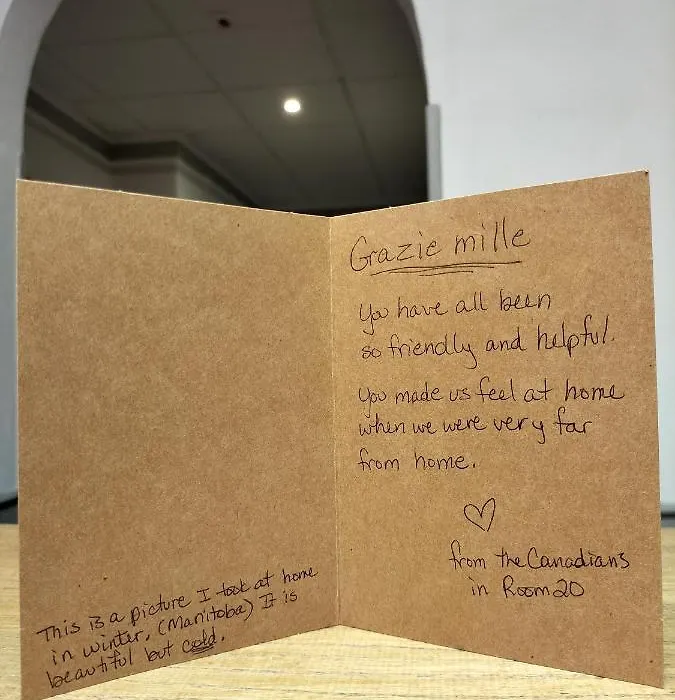 This is a picture I took at home
in winter. (Manitoba) It is
beautiful but cold.
Grazie mille
You have all been
so friendly and helpful.
You made us feel at home
when we were very far
from home.
from the Canadians
in Room 20